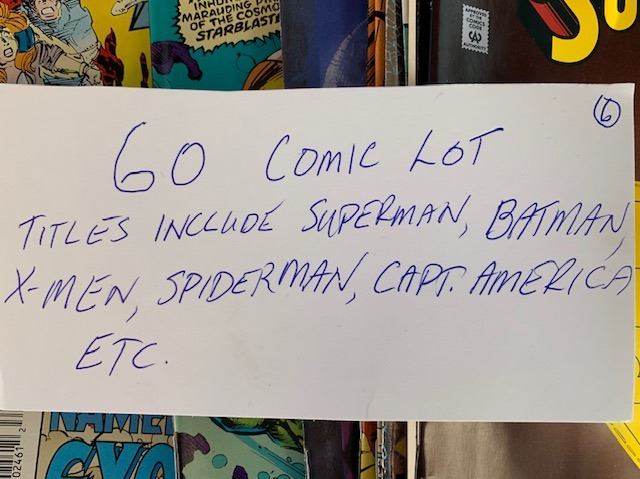 INHU
MARAUDING
OF THE COSMO
STARBLAST
APPROVED
BY THE
COMICS
CODE
CA
AUTHORITY
SU
6
60 COMIC LOT
TITLES INCLUDE SUPERMAN, BATMAN,
X-MEN, SPIDERMAN, CAPT. AMERICA
ETC.
NAME
EXO
02461